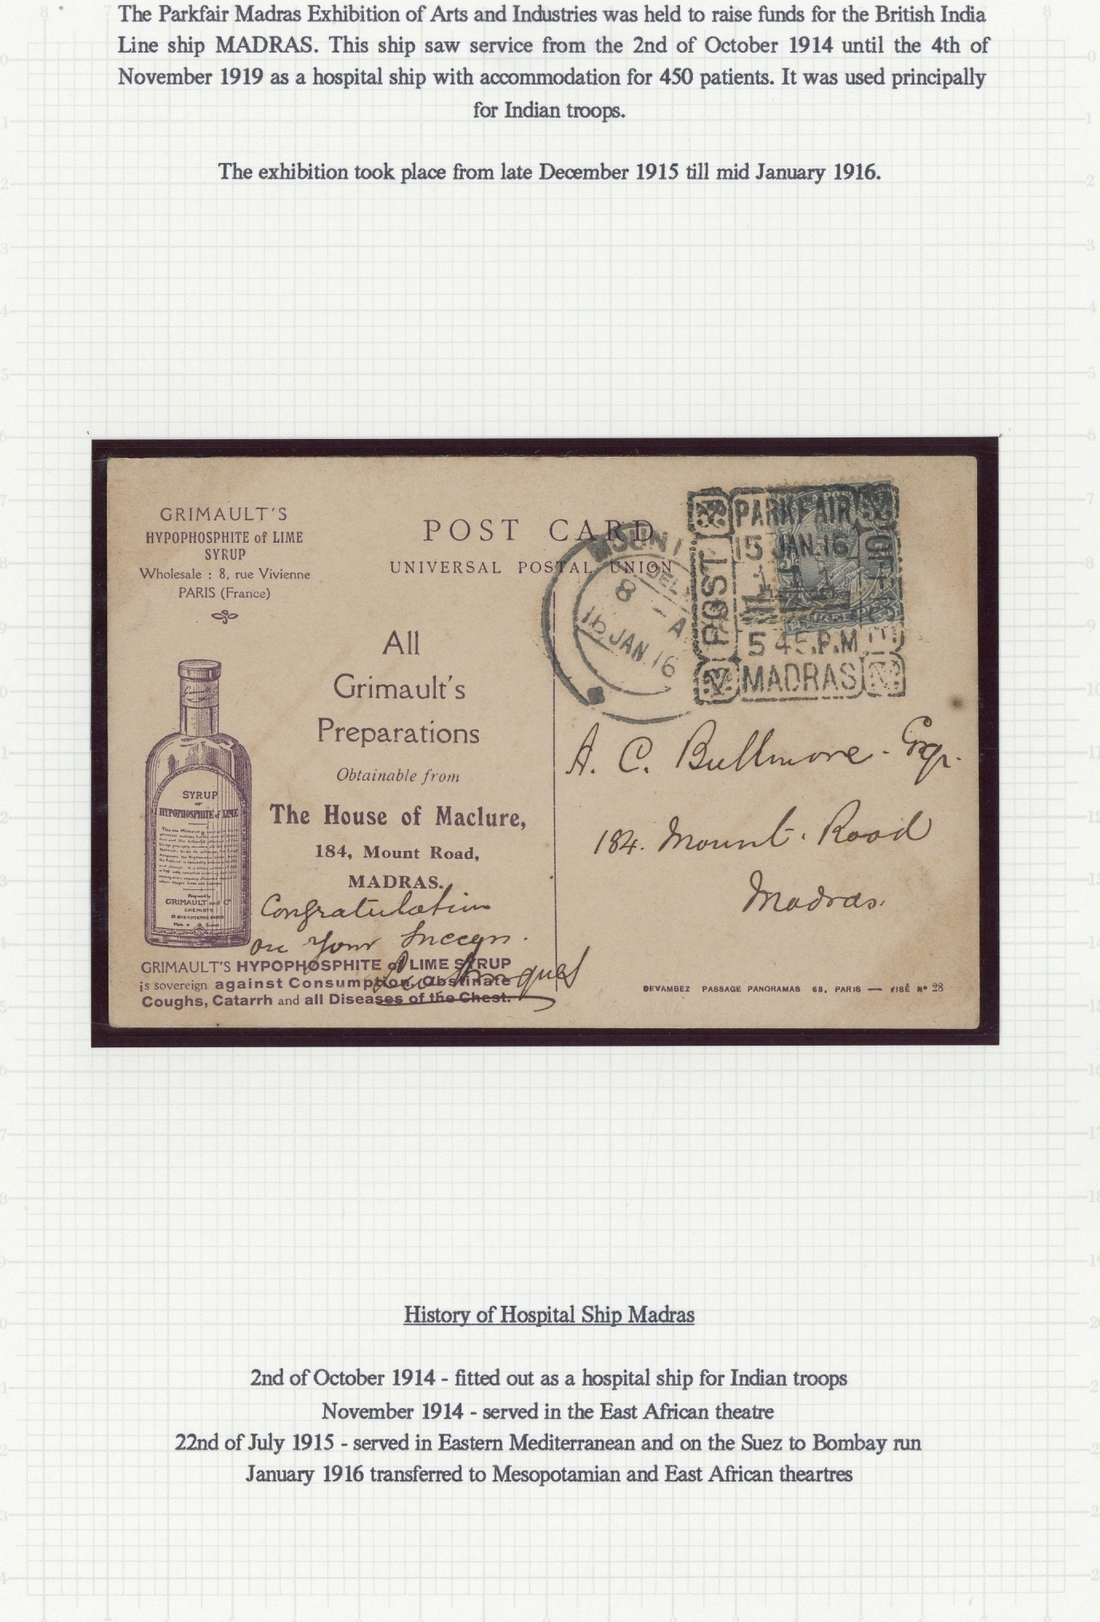 The Parkfair Madras Exhibition of Arts and Industries was held to raise funds for the British India
Line ship MADRAS. This ship saw service from the 2nd of October 1914 until the 4th of
November 1919 as a hospital ship with accommodation for 450 patients. It was used principally
for Indian troops.
The exhibition took place from late December 1915 till mid January 1916.
GRIMAULT'S
HYPOPHOSPHITE of LIME
SYRUP
Wholesale : 8, rue Vivienne
PARIS (France)
POST CARD
UNIVERSAL POSTAL UNION
MOUNT
DEL
8 - A
16 JAN 16
PARKFAIR
15 JAN. 16
POST
5 45.P.M
MADRAS
All
Grimault's
Preparations
Obtainable from
The House of Maclure,
184, Mount Road,
MADRAS.
SYRUP
OF
HYPOPHOSPHITE of LIME
GRIMAULT and Co
Congratulation
on your success.
A. C. Bullmore Esqr.
184. Mount. Road
Madras.
GRIMAULT'S HYPOPHOSPHITE of LIME SYRUP
is sovereign against Consumption, Obstinate
Coughs, Catarrh and all Diseases of the Chest.
DEVAMBEZ PASSAGE PANORAMAS 63, PARIS — VISÉ No 28
History of Hospital Ship Madras
2nd of October 1914 - fitted out as a hospital ship for Indian troops
November 1914 - served in the East African theatre
22nd of July 1915 - served in Eastern Mediterranean and on the Suez to Bombay run
January 1916 transferred to Mesopotamian and East African theartres